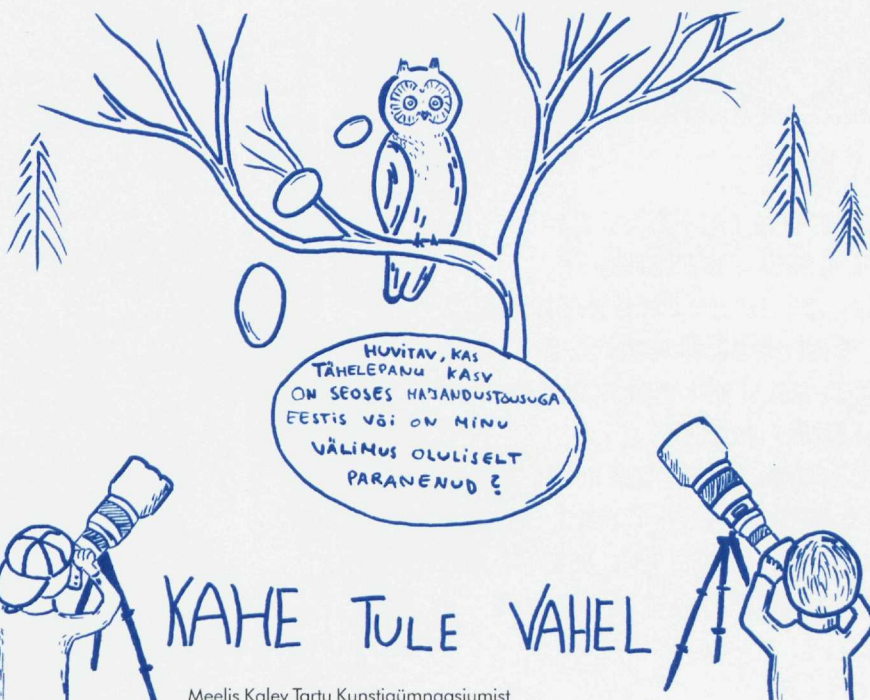 HUVITAV, KAS
TÄHELEPANU KASV
ON SEOSES HAJANDUSTÕUSUGA
EESTIS VÕI ON MINU
VÄLIMUS OLULISELT
PARANENUD?
KAHE TULE VAHEL
Meelis Kalev Tartu Kunstigümnaasiumist